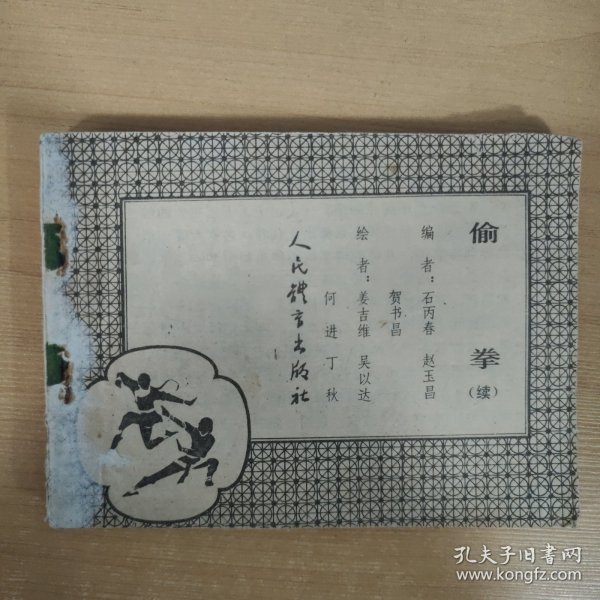 偷拳(续)
编者:石丙春 赵玉昌
贺书昌
绘者:姜吉维 吴以达
何进 丁秋
人民體育出版社
孔夫子旧书网
www.kongfz.com